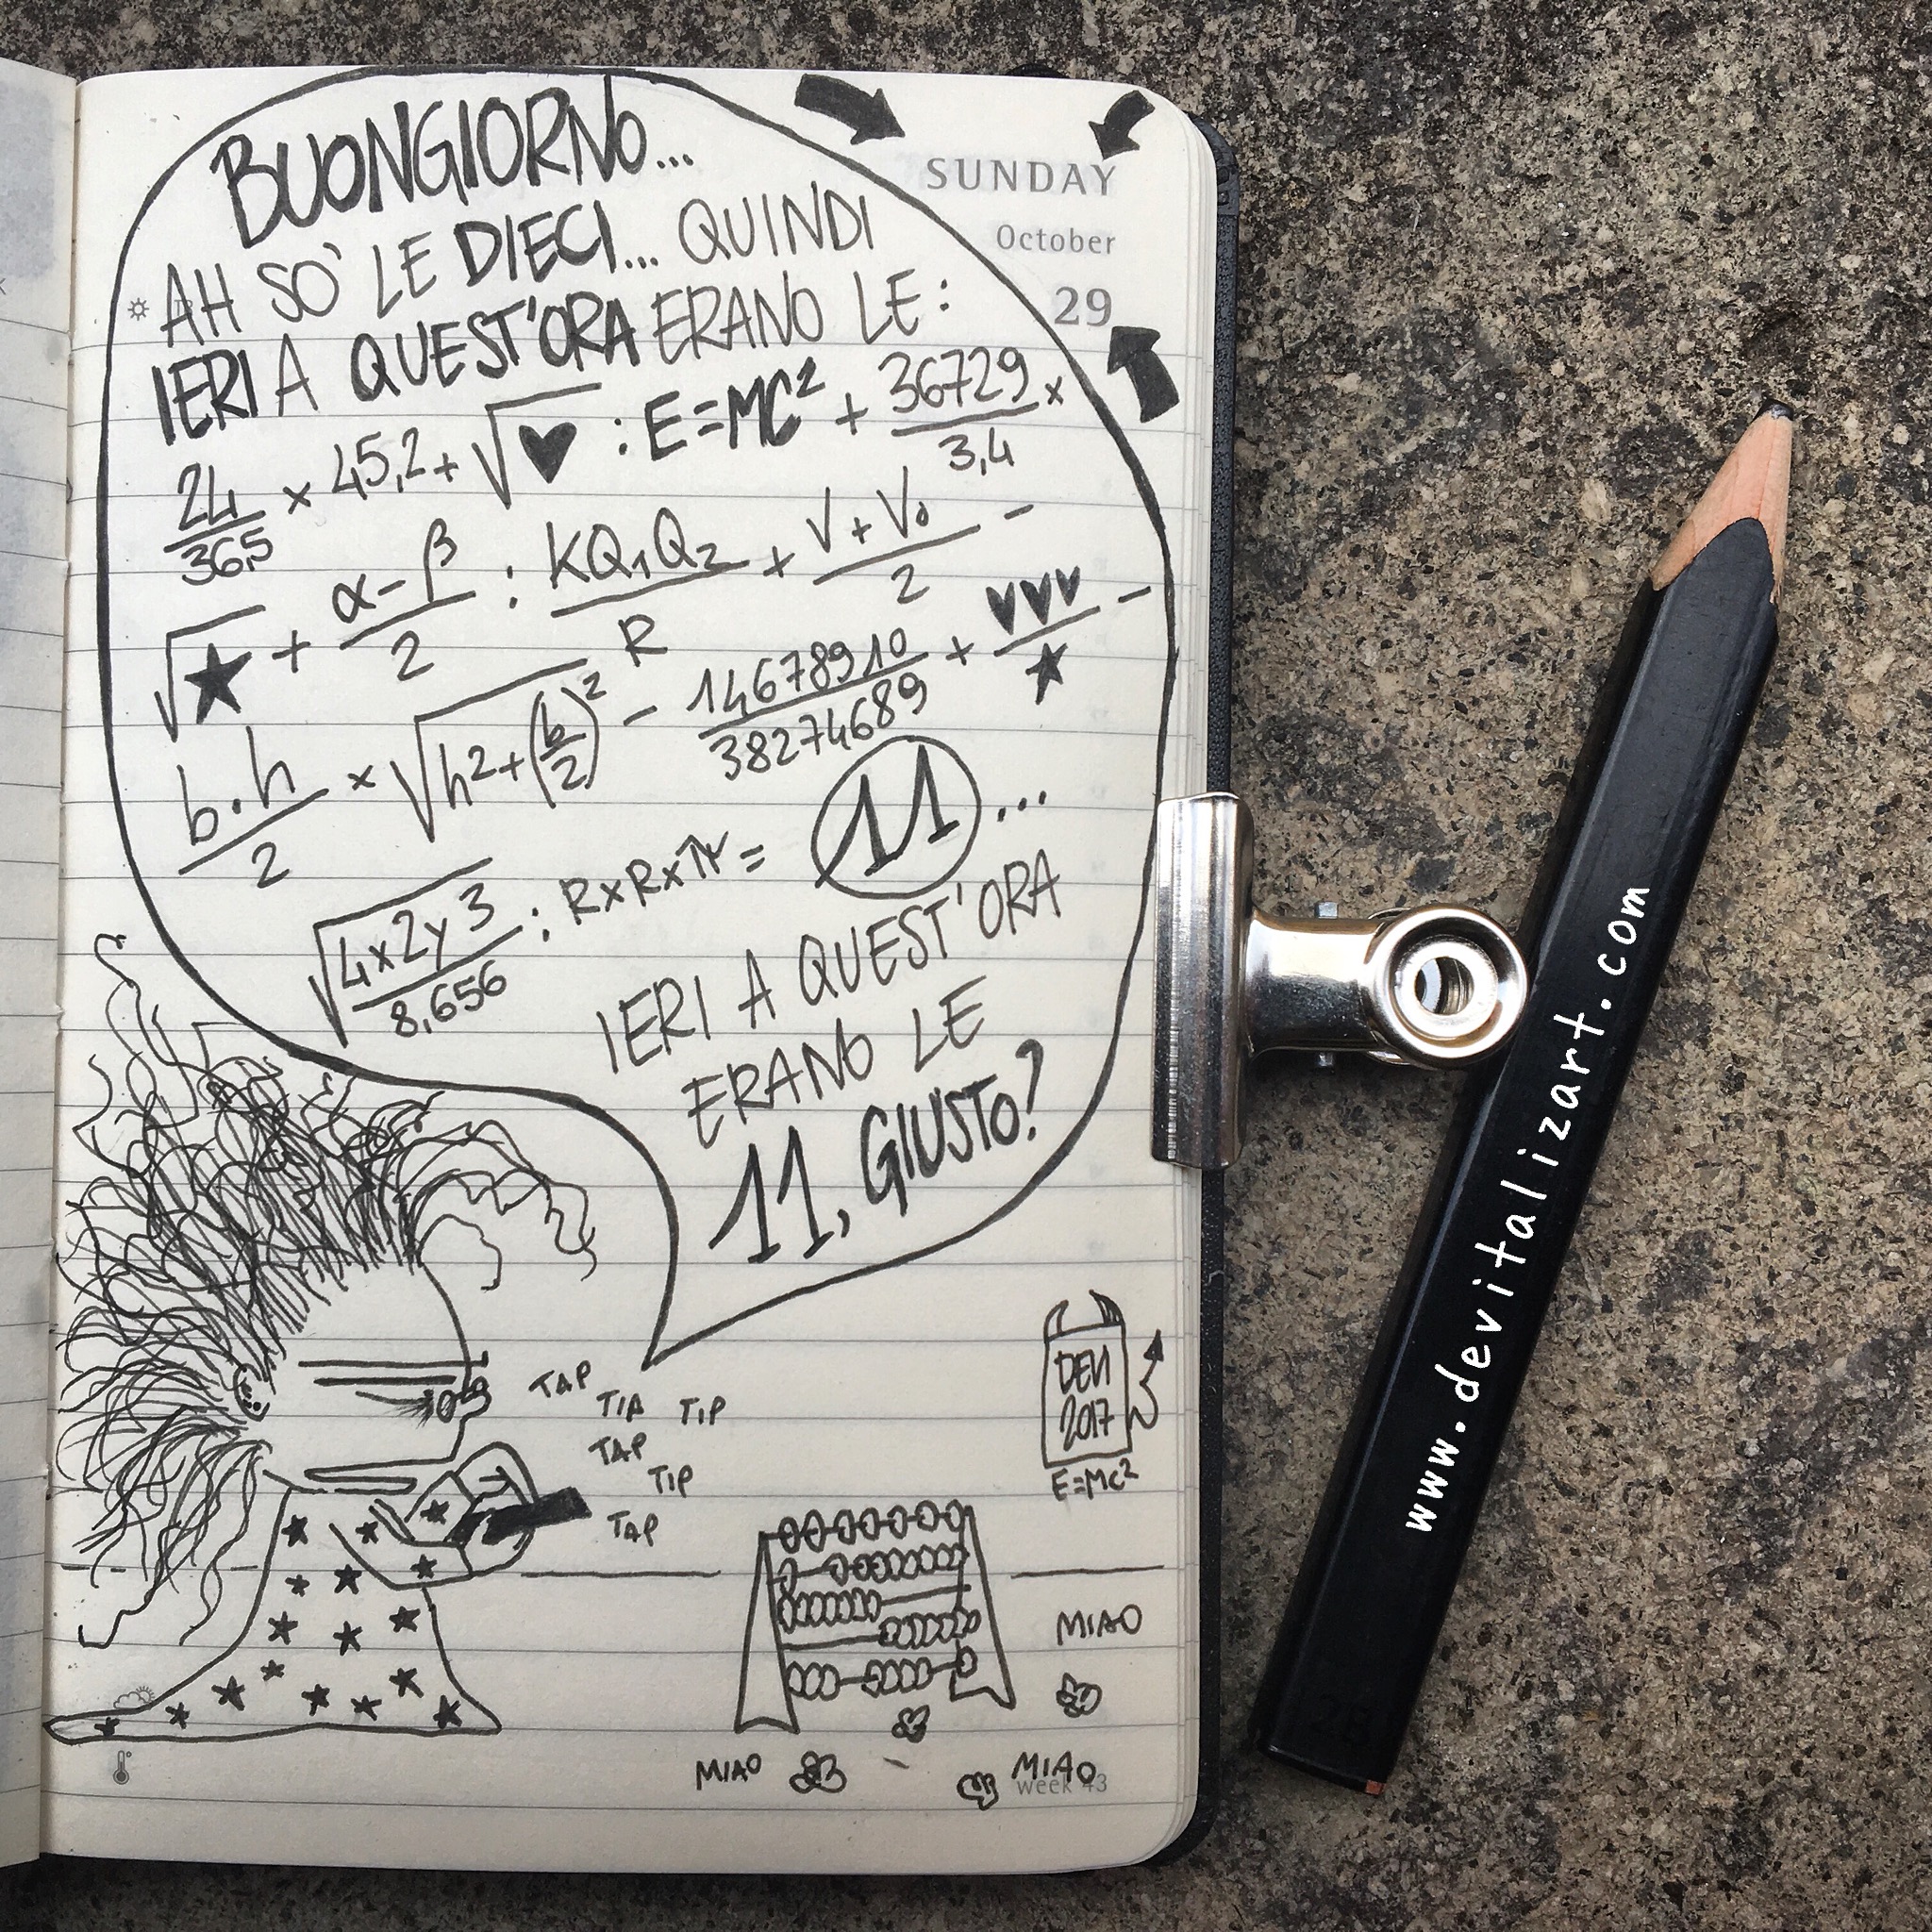 BUONGIORNO...
AH SO' LE DIECI... QUINDI
IERI A QUEST'ORA ERANO LE:
24/36,5 × 45,2 + √♥ : E=MC² + 36729/3,4 ×
√★ + α-β/2 : KQ₁Q₂/R + V+V₀/2 -
b·h/2 × √h²+(b/2)² - 146789110/38274689 + ♥♥♥/★ -
√4x2y3/8,656 : R×R×π = 11...
IERI A QUEST'ORA
ERANO LE
11, GIUSTO?
SUNDAY
October
29
TAP
TIP
TAP
TIP
TAP
DEVI
2017
E=Mc²
MIAO
MIAO
MIAO
week 43
www.devitalizart.com